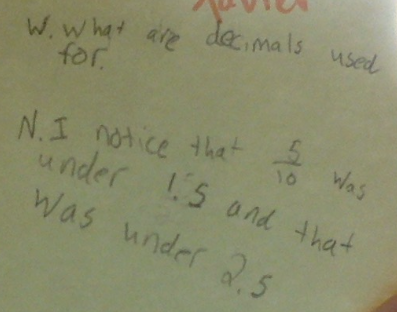 Xavier
W. What are decimals used
for.
N. I notice that 5/10 was
under 1.5 and that
was under 2.5